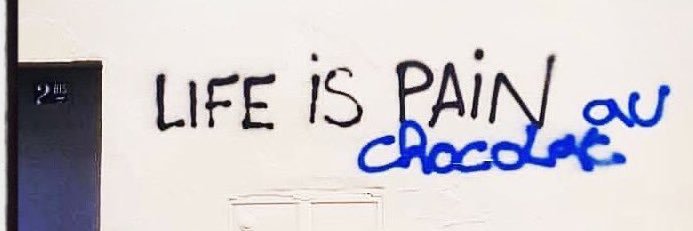 2 BIS
LIFE iS PAiN au
chocolat.